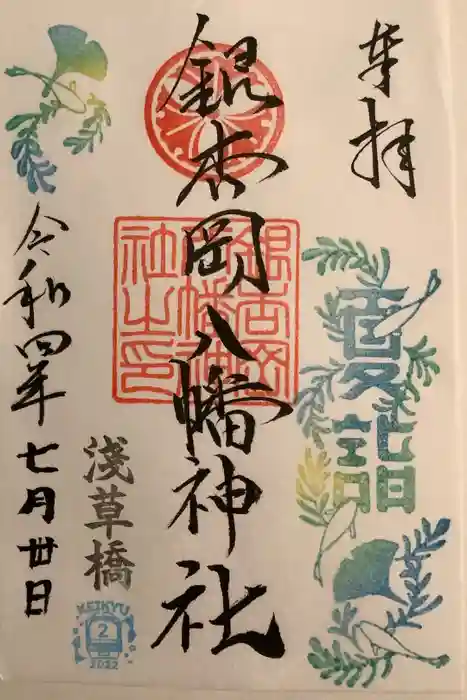 奉拝
夏詣
銀杏岡八幡神社
銀杏岡
八幡神
社之印
令和四年七月丗日
淺草橋
KEIKYU
2
2022